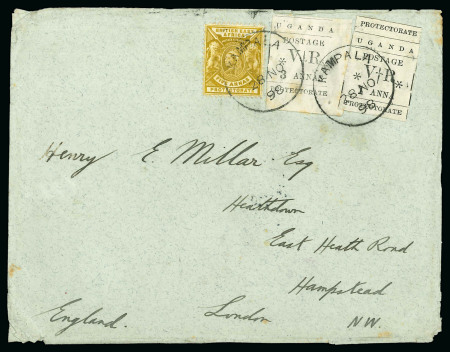 BRITISH EAST
AFRICA
FIVE ANNAS
PROTECTORATE
UGANDA
POSTAGE
V*R
3
ANNAS
PROTECTORATE
PROTECTORATE
UGANDA
POSTAGE
V+R
1
ANNA
PROTECTORATE
KAMPALA
28 NO
98
KAMPALA
28 NO
98
Henry E. Millar Esq
Heathdown
East Heath Road
Hampstead
England. London NW.